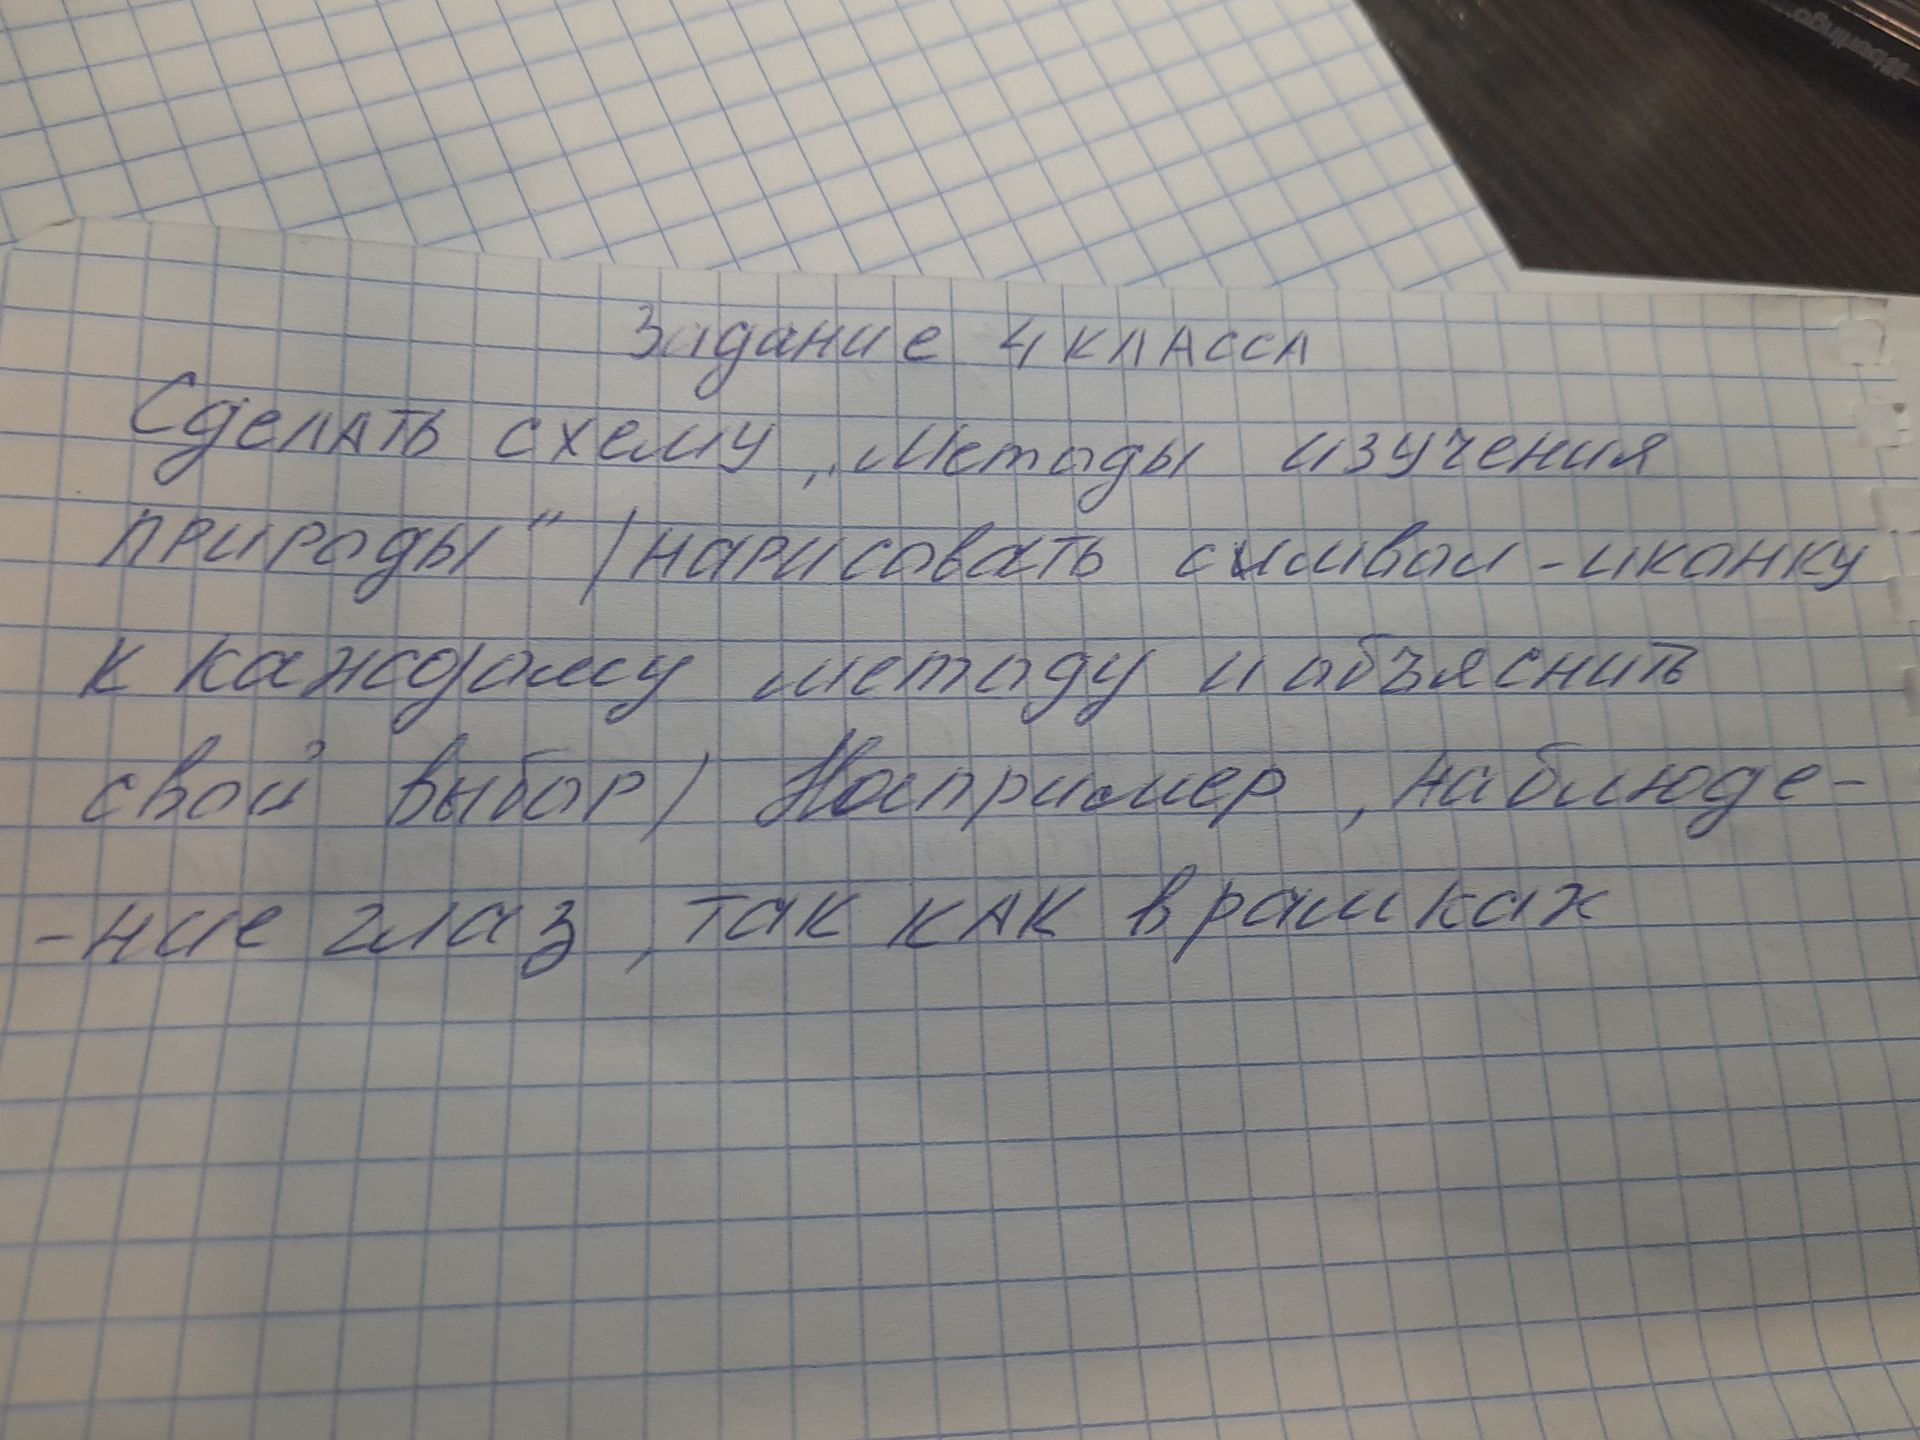 Задание 4 класса
Сделать схему „Методы изучения
природы" /нарисовать символ-иконку
к каждому методу и объяснить
свой выбор/ Например, наблюде-
-ние глаз, так как в рамках